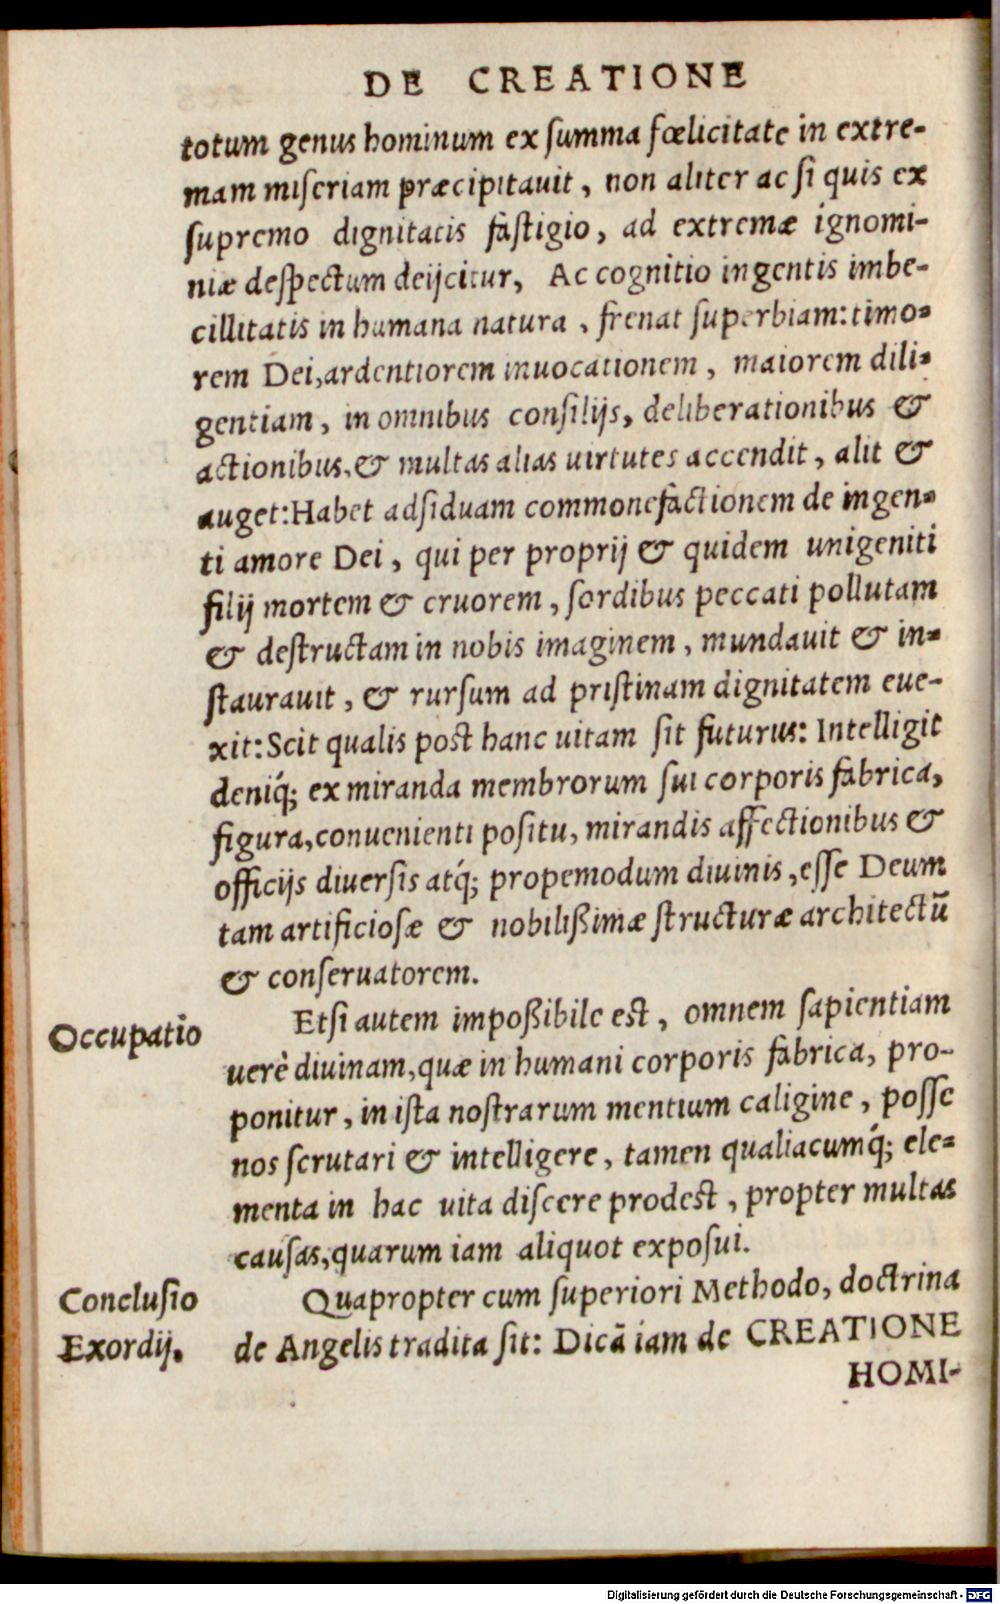 DE CREATIONE
totum genus hominum ex ſumma fœlicitate in extre-
mam miſeriam præcipitauit, non aliter ac ſi quis ex
ſupremo dignitatis faſtigio, ad extremæ ignomi-
niæ deſpectum deijcitur, Ac cognitio ingentis imbe-
cillitatis in humana natura, frenat ſuperbiam: timo-
rem Dei, ardentiorem inuocationem, maiorem dili-
gentiam, in omnibus conſilijs, deliberationibus &
actionibus, & multas alias uirtutes accendit, alit &
auget: Habet adſiduam commonefactionem de ingen-
ti amore Dei, qui per proprij & quidem unigeniti
filij mortem & cruorem, ſordibus peccati pollutam
& deſtructam in nobis imaginem, mundauit & in-
ſtaurauit, & rurſum ad priſtinam dignitatem eue-
xit: Scit qualis poſt hanc uitam ſit futurus: Intelligit
deniq́; ex miranda membrorum ſui corporis fabrica,
figura, conuenienti poſitu, mirandis affectionibus &
officijs diuerſis atq́; propemodum diuinis, eſſe Deum
tam artificioſæ & nobilißimæ ſtructuræ architectū
& conſeruatorem.
Occupatio
Etſi autem impoßibile eſt, omnem ſapientiam
uerè diuinam, quæ in humani corporis fabrica, pro-
ponitur, in iſta noſtrarum mentium caligine, poſſe
nos ſcrutari & intelligere, tamen qualiacumq́; ele-
menta in hac uita diſcere prodeſt, propter multas
cauſas, quarum iam aliquot expoſui.
Concluſio
Exordij.
Quapropter cum ſuperiori Methodo, doctrina
de Angelis tradita ſit: Dicā iam de CREATIONE
HOMI-
Digitalisierung gefördert durch die Deutsche Forschungsgemeinschaft - DFG